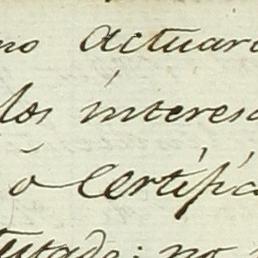 no actuar
los interes
o Certific
testado; no